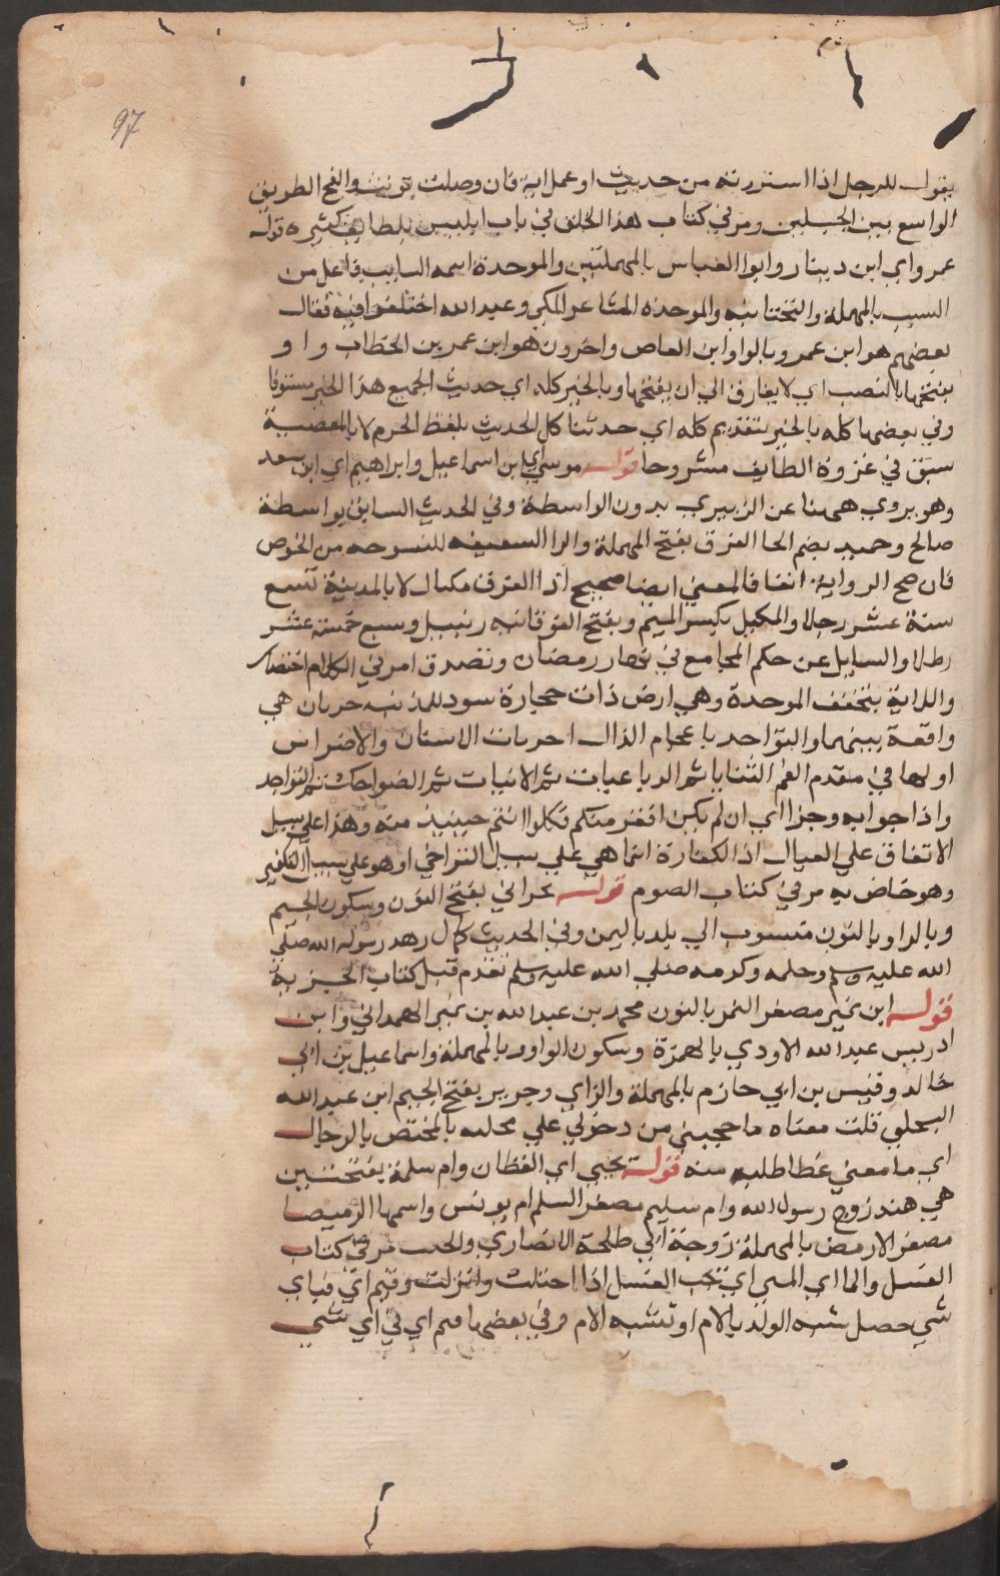 97
يقول للرجل اذا استزرته من حديث او عمل ايه فان وصلت نونت والفج الطريق
الواسع بين الجبلين ومر في كتاب هذا الخلق في باب ابليس لطايف كثيره قوله
عمرو اي ابن دينار وابوا العباس بالمهملتين والموحدة اسمه السايب فاعل من
السيب بالمهملة والتحتانيه والموحده الشاعر المكي وعبد الله اختلفوا فيه فقال
بعضهم هو ابن عمرو بالواو ابن العاص واخرون هو ابن عمر بن الخطاب و ا و
يفتحها بالنصب اي لا يفارق الي ان يفتحها وبالخبر كله اي حديث الجميع هذا الخبر مستوفا
وفي بعضها كله بالخبر بتقديم كله اي حدثنا كل الحديث بلفظ الخبر لا بالعنعنة
سبق في غزوة الطايف مشروحا قوله موسي اي ابن اسماعيل وابراهيم اي ابن سعد
وهو يروي ههنا عن الزهري بدون الواسطة وفي الحديث السابق بواسطة
صالح وحميد بضم الحا العرق بفتح المهملة والرا السفيفه المنسوجه من الخوص
فان صح الروايه انفا فالمعني ايضا صحيح اذا العرق مكيال لا بالمدينة تسع
ستة عشر رجلا والمكتل بكسر الميم وبفتح الفوقانيه زنبيل وسبع خمسة عشر
رطلا والسايل عن حكم المجامع في نهار رمضان وتصدق امر في الكلام اختصار
واللابة بتخفيف الموحدة وهي ارض ذات حجارة سود للمدينه حرتان هي
واقعة بينهما والنواجد باعجام الذال اخريات الاسنان والاضراس
اولها في مقدم الفم الثنايا ثم الرباعيات ثم الانياب ثم الضواحك ثم النواجد
واذا جوابه وجزا اي ان لم يكن افقر منكم فكلوا انتم حينيذ منه وهذا علي سبيل
الاتفاق علي العيال اذ الكفارة انما هي علي سبيل التراخي او هو علي سبيل التكفير
وهو خاص به مر في كتاب الصوم قوله نجراني بفتح النون وسكون الجيم
وبالرا وبالنون منسوب الي بلد باليمن وفي الحديث كمال زهد رسول الله صلي
الله عليه وسلم وحلمه وكرمه صلي الله عليه وسلم تقدم قبل كتاب الجزية
قوله ابن نمير مصغر النمر بالنون محمد بن عبد الله بن نمير الهمداني وابن
ادريس عبد الله الاودي بالهمزة وسكون الواو وبالمهملة واسماعيل بن ابي
خالد وقيس بن ابي حازم بالمهملة والزاي وجرير بفتح الجيم ابن عبد الله
البجلي قلت معناه ما حجبني من دخولي علي مجلسه بالمختص بالرجال
اي ما معني عطا طلبه منه قوله يحيي اي القطان وام سلمة بفتحتين
هي هند زوج رسول الله وام سليم مصغر السلم ام يونس واسمها الرميصا
مصغر الارمص بالمهملة زوجة ابي طلحة الانصاري والحب مر في كتاب
الغسل والما اي المني اي يجب الغسل اذا احتلمت وانزلت وفبم اي فباي
شي حصل شبه الولد بالام او تشبه الام وفي بعضها فيم اي في اي شي